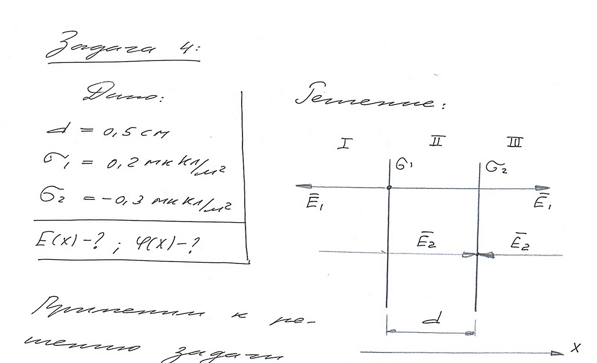 Задача 4:
Дано:
d = 0,5 см
σ₁ = 0,2 мкКл/м²
σ₂ = -0,3 мкКл/м²
E(x)-? ; φ(x)-?
Решение:
I II III
σ₁ σ₂
E̅₁ E̅₁
E̅₂ E̅₂
d
x
Применим к ре-
шению задачи